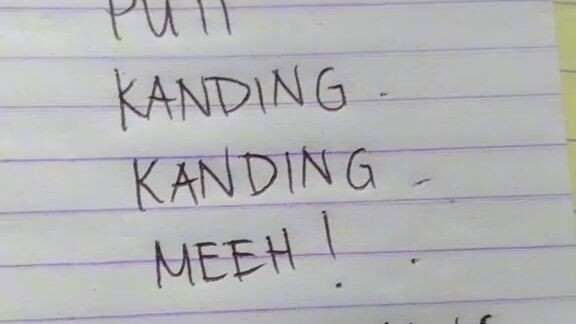 KANDING -
KANDING -
MEEH! .